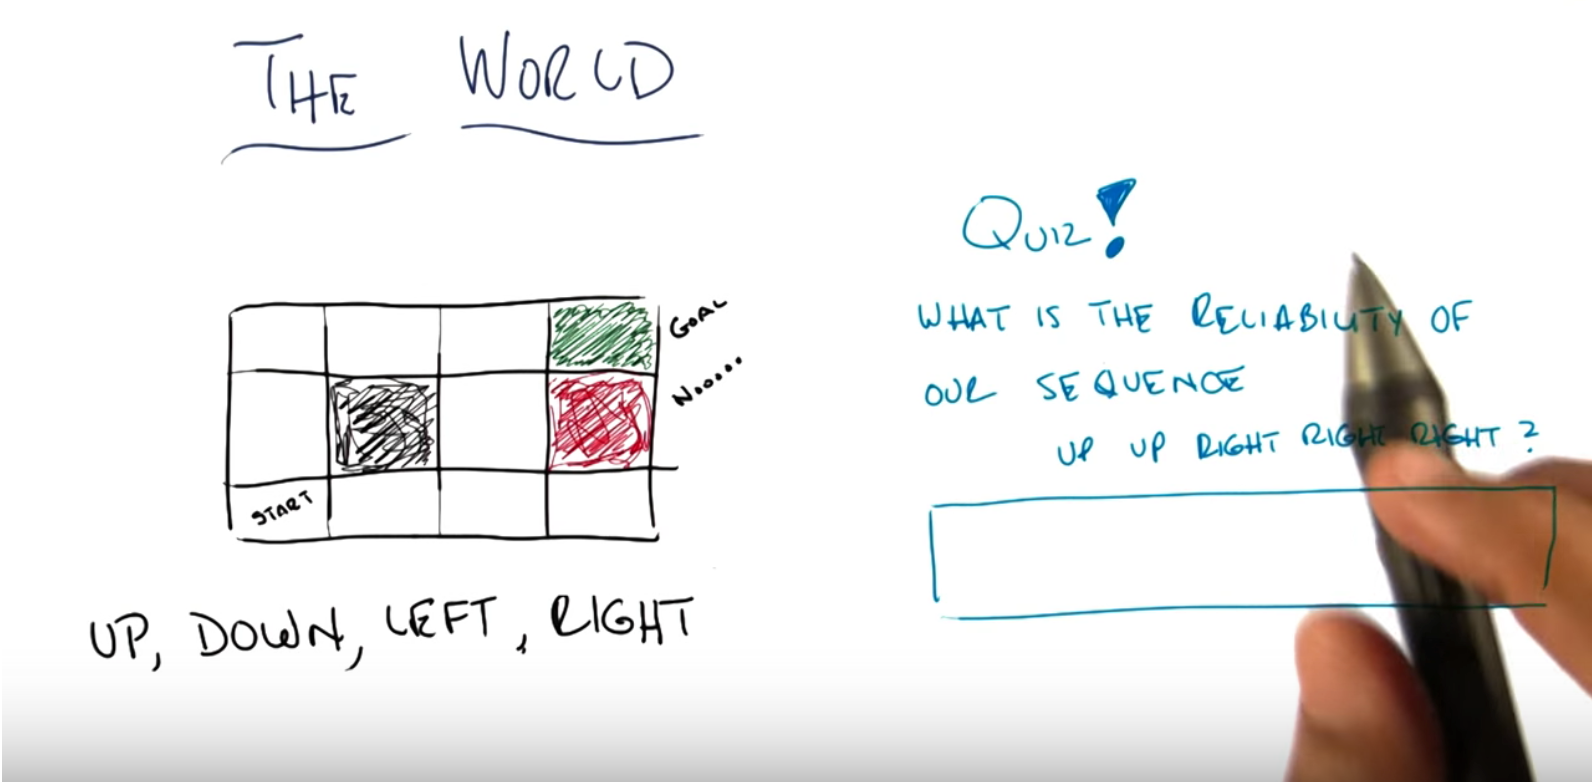 THE WORLD
GOAL
Noooo..
START
UP, DOWN, LEFT, RIGHT
QUIZ!
WHAT IS THE RELIABILITY OF
OUR SEQUENCE
UP UP RIGHT RIGHT RIGHT ?